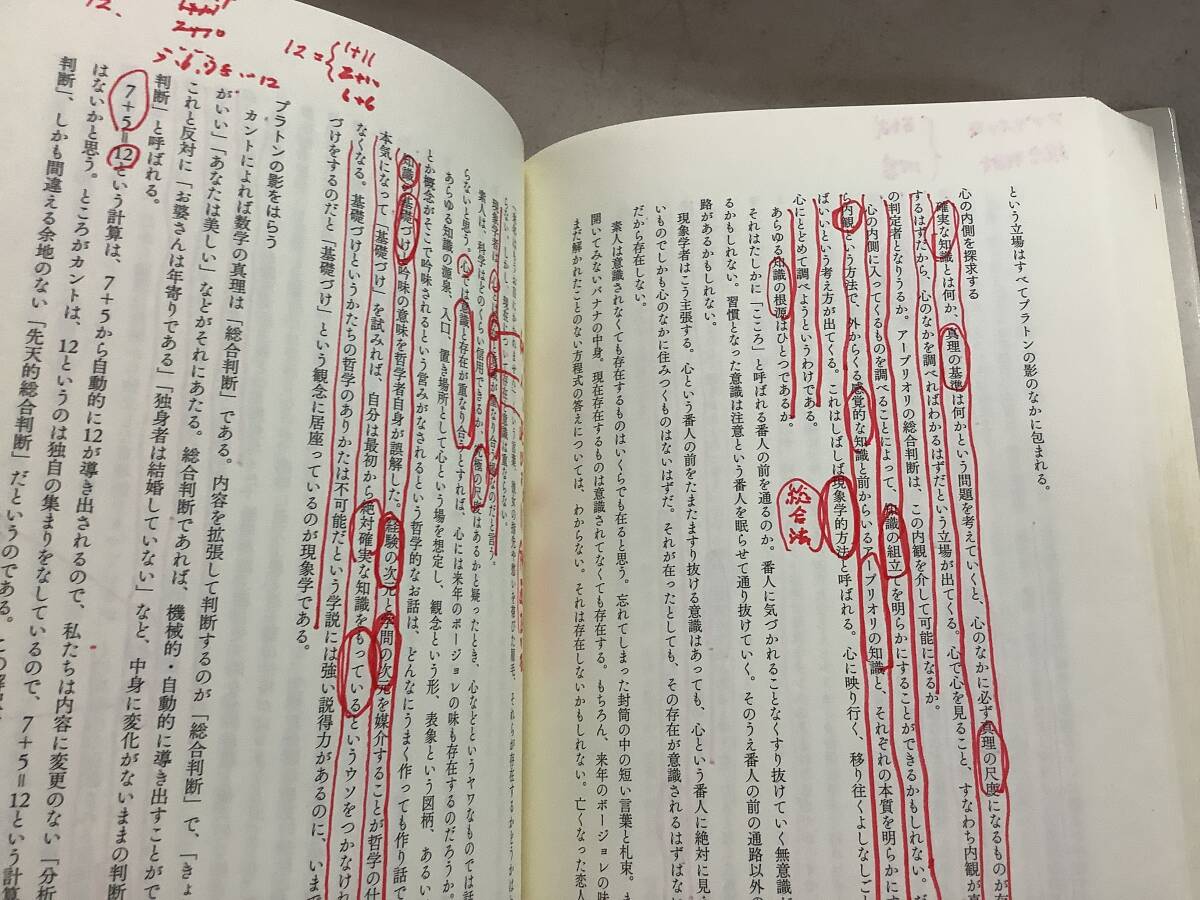 という立場はすべてプラトンの影のなかに包まれる。
心の内側を探求する
確実な知識とは何か、真理の基準は何かという問題を考えていくと、心のなかに必ず真理の尺度になるものが
するはずだから、心のなかを調べればわかるはずだという立場が出てくる。心で心を見ること、すなわち内観が真
の判定者となりうるか。アープリオリの総合判断は、この内観を介して可能になるか。
心の内側に入ってくるものを調べることによって、知識の組立てを明らかにすることができるかもしれない。だ
ら内観という方法で、外からくる感覚的な知識と前からいるアープリオリの知識と、それぞれの本質を明らかにす
ばいいという考え方が出てくる。これはしばしば現象学的方法と呼ばれる。心に映り行く、移り往くよしなしご
心にとどめて調べようというわけである。
総合法
あらゆる知識の根源はひとつであるか。
それはたしかに「こころ」と呼ばれる番人の前を通るのか。番人に気づかれることなくすり抜けていく無意識
るかもしれない。習慣となった意識は注意という番人を眠らせて通り抜けていく。そのうえ番人の前の通路以外の
路があるかもしれない。
現象学者はこう主張する。心という番人の前をたまたますり抜ける意識はあっても、心という番人に絶対に見
いものでしかも心のなかに住みつくものはないはずだ。それが在ったとしても、その存在が意識されるはずはな
だから存在しない。
素人は意識されなくても存在するものはいくらでも在ると思う。忘れてしまった封筒の中の短い言葉と札束。ま
開いてみないバナナの中身。現在存在するものは意識されてなくても存在する。もちろん、来年のボージョレの味
まだ解かれたことのない方程式の答えについては、わからない。それは存在しないかもしれない。亡くなった恋人
素人は、科学はどのくらい信用できるか、究極の尺度はあるかと疑ったとき、心などというヤワなものでは話
らないと思う。心では意識と存在が重なり合うとすれば、心には来年のボージョレの味も存在するのだろうか。
あらゆる知識の源泉、入口、置き場所として心という場を想定し、観念という形、表象という図柄、あるい
とか概念がそこで吟味されるという営みがなされるという哲学的なお話は、どんなにうまく作っても作り話で
知識の基礎づけと吟味の意味を哲学者自身が誤解した。経験の次元と学問の次元を媒介することが哲学の仕
本気になって「基礎づけ」を試みれば、自分は最初から絶対確実な知識をもっているというウソをつかなけれ
なくなる。基礎づけというかたちの哲学のありかたは不可能だという学説には強い説得力があるのに、いまで
づけをするのだと「基礎づけ」という観念に居座っているのが現象学である。
12={1+11
2+10
6+6
プラトンの影をはらう
カントによれば数学の真理は「総合判断」である。内容を拡張して判断するのが「総合判断」で、「きょ
がいい」「あなたは美しい」などがそれにあたる。総合判断であれば、機械的・自動的に導き出すことがで
これと反対に「お婆さんは年寄りである」「独身者は結婚していない」など、中身に変化がないままの判断
判断」と呼ばれる。
7+5=12という計算は、7+5から自動的に12が導き出されるので、私たちは内容に変更のない「分析
はないかと思う。ところがカントは、12というのは独自の集まりをなしているので、7+5=12という計算
判断」、しかも間違える余地のない「先天的総合判断」だというのである。この解釈
12.
2+10